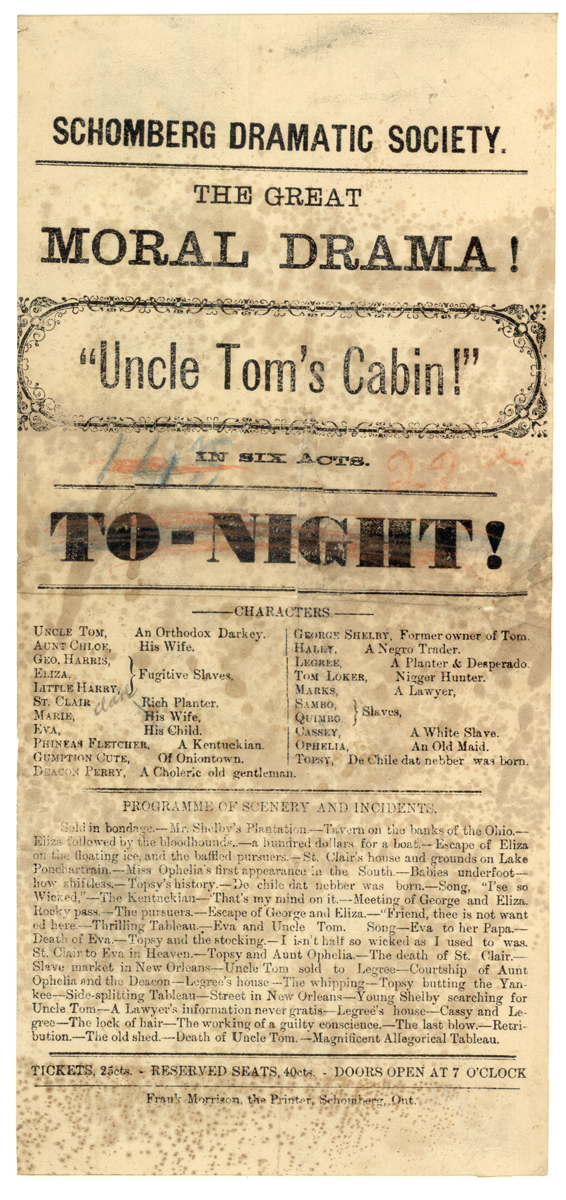 SCHOMBERG DRAMATIC SOCIETY.
THE GREAT
MORAL DRAMA!
"Uncle Tom's Cabin!"
IN SIX ACTS.
TO-NIGHT!
CHARACTERS.
UNCLE TOM, An Orthodox Darkey.
AUNT CHLOE, His Wife.
GEO. HARRIS,
ELIZA, Fugitive Slaves,
LITTLE HARRY,
ST. CLAIR Rich Planter.
MARIE, His Wife,
EVA, His Child.
PHINEAS FLETCHER, A Kentuckian.
GUMPTION CUTE, Of Oniontown.
DEACON PERRY, A Choleric old gentleman.
GEORGE SHELBY, Former owner of Tom.
HALEY, A Negro Trader.
LEGREE, A Planter & Desperado.
TOM LOKER, Nigger Hunter.
MARKS, A Lawyer,
SAMBO,
QUIMBO Slaves,
CASSEY, A White Slave.
OPHELIA, An Old Maid.
TOPSY, De Chile dat nebber was born.
PROGRAMME OF SCENERY AND INCIDENTS.
Sold in bondage.—Mr. Shelby's Plantation.—Tavern on the banks of the Ohio.—
Eliza followed by the bloodhounds.—a hundred dollars for a boat.—Escape of Eliza
on the floating ice, and the baffled pursuers.—St. Clair's house and grounds on Lake
Ponchartrain.—Miss Ophelia's first appearance in the South.—Babies underfoot—
how shiftless.—Topsy's history.—De chile dat nebber was born.—Song, "I'se so
Wicked,"—The Kentuckian—"That's my mind on it.—Meeting of George and Eliza.
Rocky pass.—The pursuers.—Escape of George and Eliza.—"Friend, thee is not want
ed here.—Thrilling Tableau.—Eva and Uncle Tom. Song—Eva to her Papa.—
Death of Eva.—Topsy and the stocking.—I isn't half so wicked as I used to was.
St. Clair to Eva in Heaven.—Topsy and Aunt Ophelia.—The death of St. Clair.—
Slave market in New Orleans—Uncle Tom sold to Legree—Courtship of Aunt
Ophelia and the Deacon—Legree's house—The whipping—Topsy butting the Yan-
kee—Side-splitting Tableau—Street in New Orleans—Young Shelby searching for
Uncle Tom—A Lawyer's information never gratis—Legree's house—Cassy and Le-
gree—The lock of hair—The working of a guilty conscience.—The last blow.—Retri-
bution.—The old shed.—Death of Uncle Tom.—Magnificent Allegorical Tableau.
TICKETS, 25cts. - RESERVED SEATS, 40cts. - DOORS OPEN AT 7 O'CLOCK
Frank Morrison, the Printer, Schomberg, Ont.